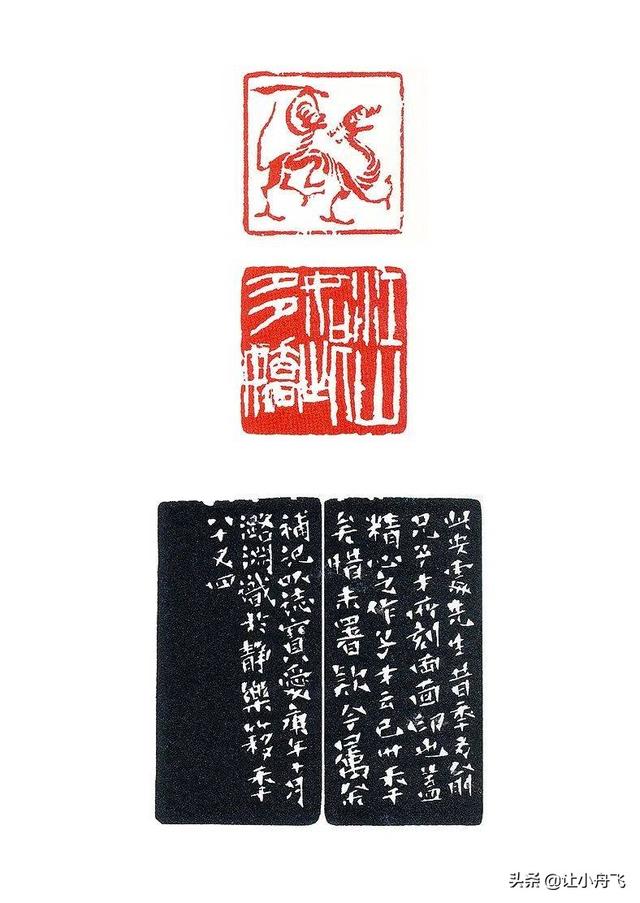 江山
如此
多嬌
此安處先生昔秊為翁
兄子木所刻兩面印也蓋
精心之作子木云已卅秊
矣惜未署款今屬余
補記以誌寶愛庚午十月
潞淵識於靜樂簃秊
八十又四
头条 @让小舟飞